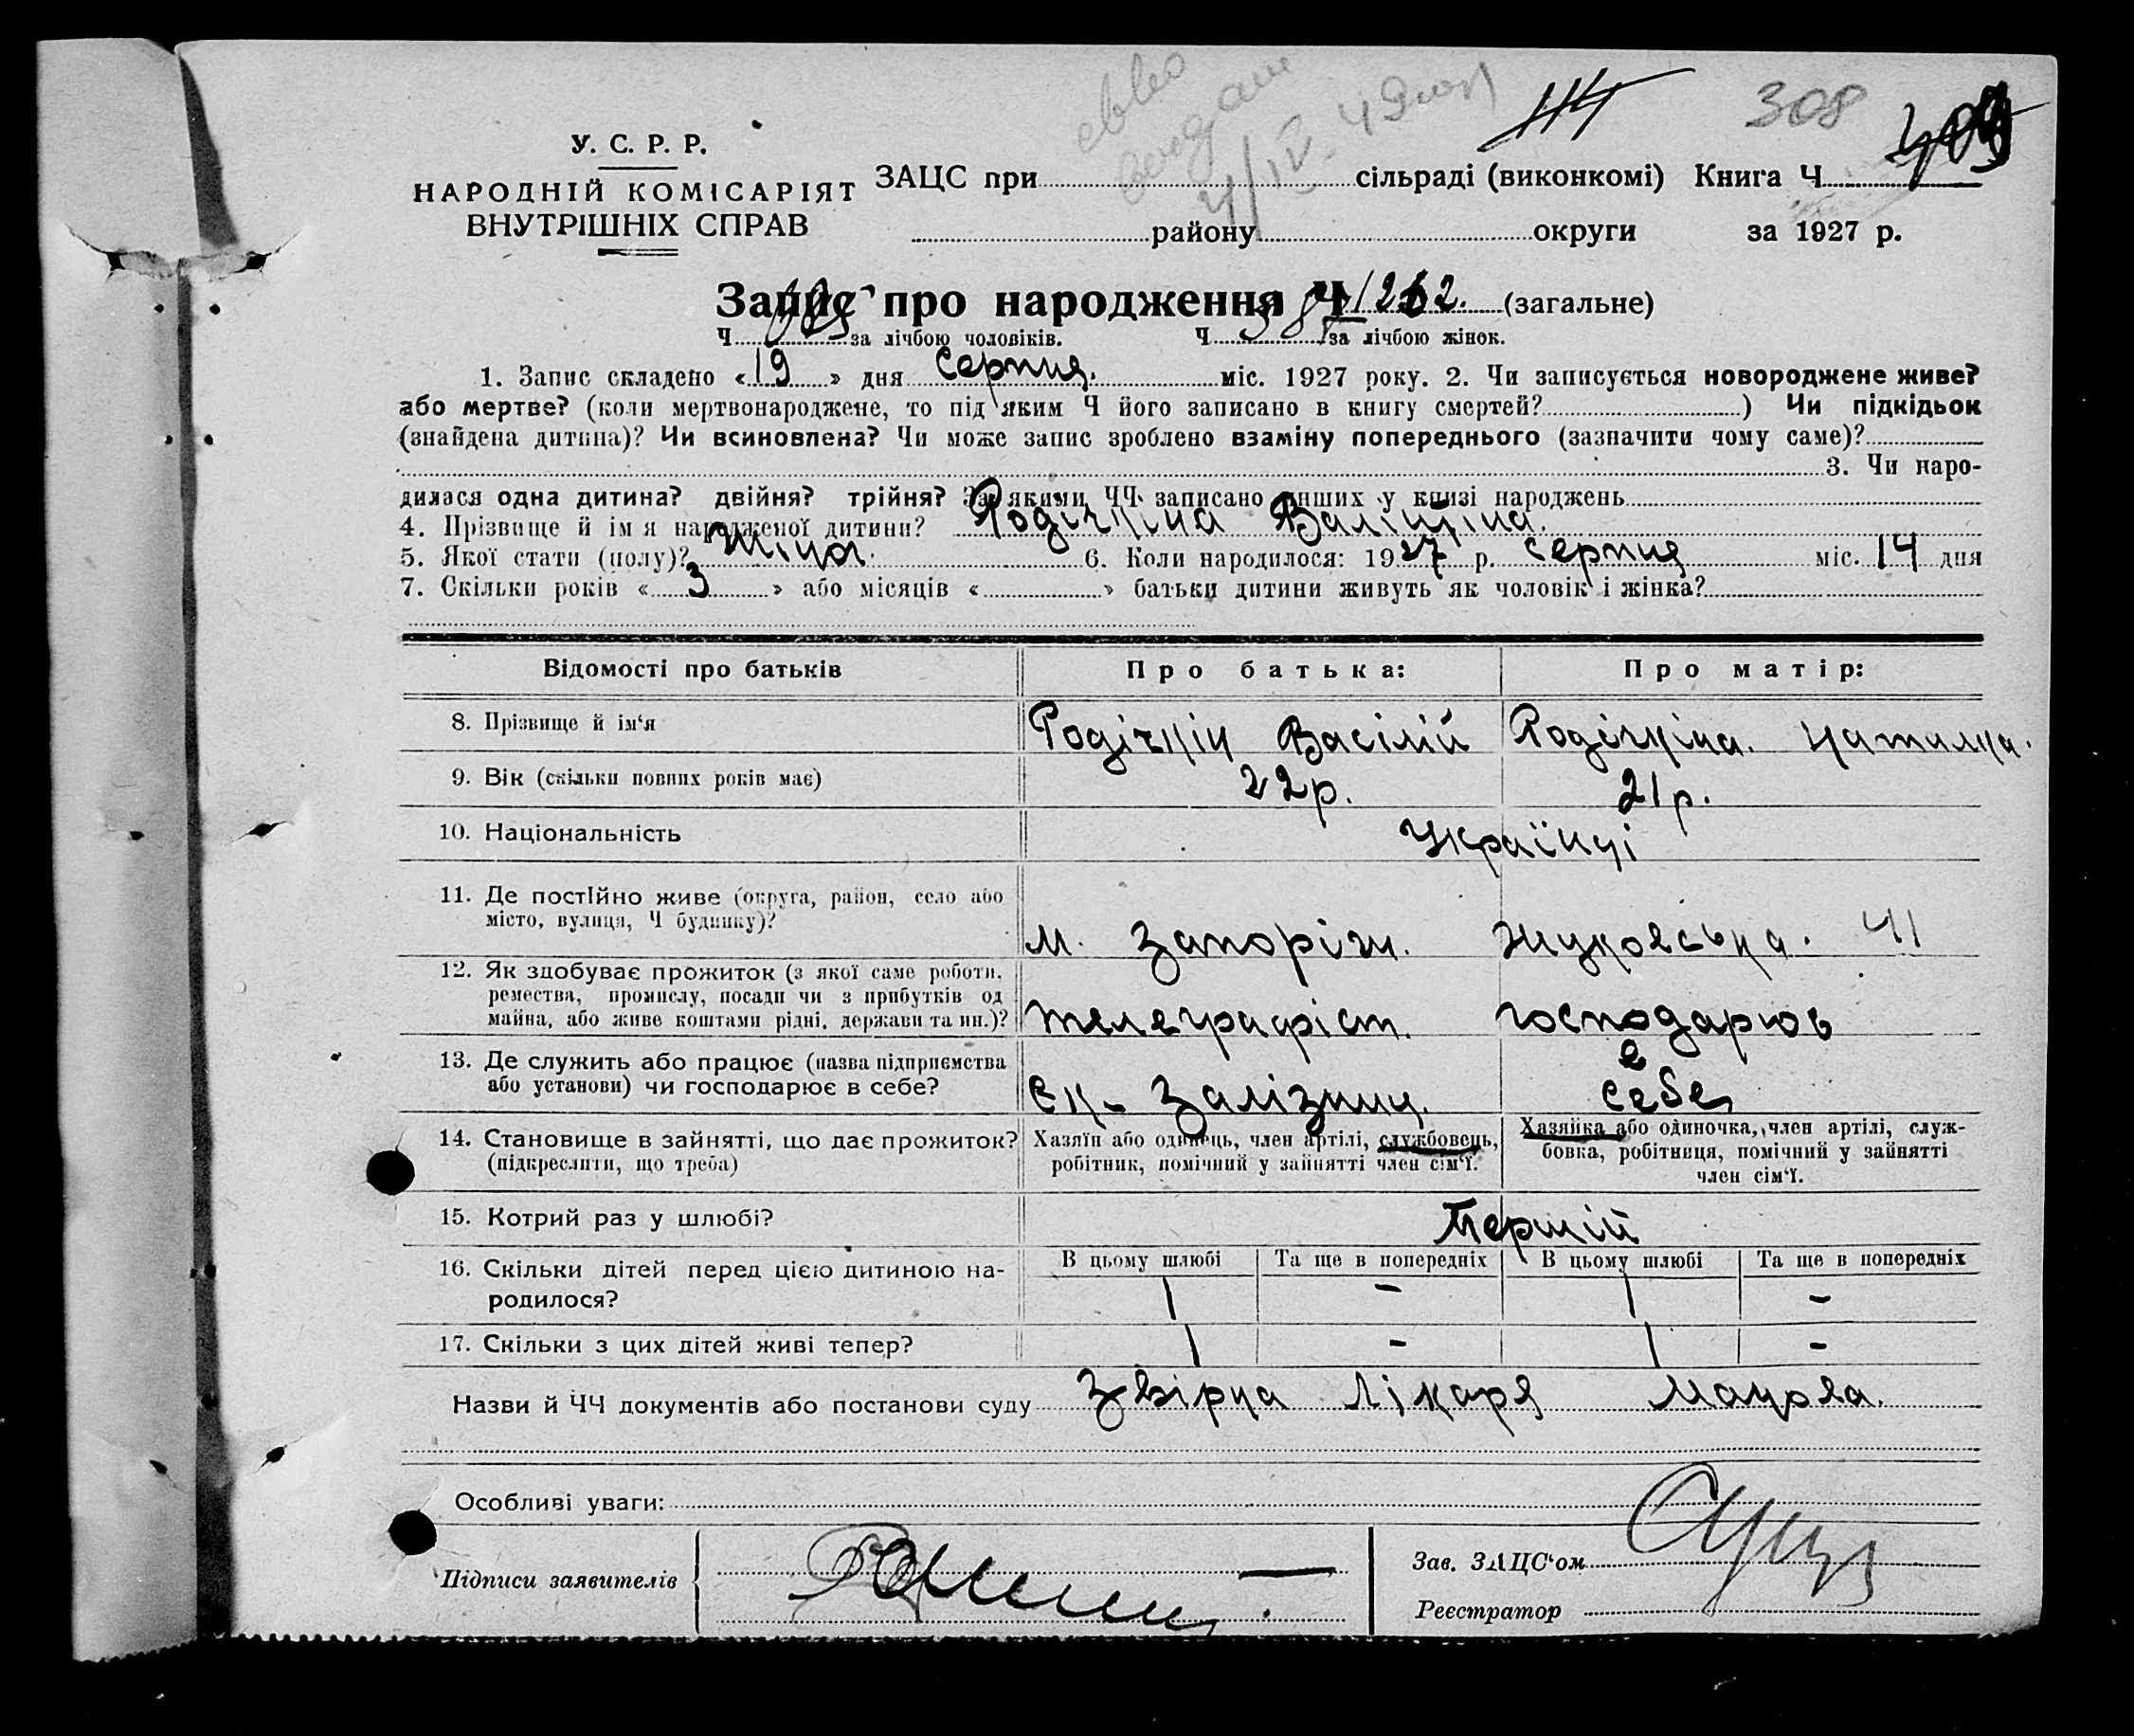 308
У. С. Р. Р.
НАРОДНІЙ КОМІСАРІЯТ
ВНУТРІШНІХ СПРАВ
ЗАЦС при сільраді (виконкомі) Книга Ч
району округи за 1927 р.
Запис про народження Ч (загальне)
Ч за лічбою чоловіків. Ч за лічбою жінок.
1. Запис складено « 19 » дня Серпня. міс. 1927 року. 2. Чи записується новороджене живе?
або мертве? (коли мертвонароджене, то під яким Ч його записано в книгу смертей? ) Чи підкідьок
(знайдена дитина)? Чи всиновлена? Чи може запис зроблено взаміну попереднього (зазначити чому саме)?
3. Чи наро-
дилася одна дитина? двійня? трійня? За якими ЧЧ записано инших у книзі народжень
4. Прізвище й ім я народженої дитини? Родічкіна Валінтіна.
5. Якої стати (полу)? жіноч. 6. Коли народилося: 1927 р. серпня міс. 14 дня
7. Скільки років « 3 » або місяців « » батьки дитини живуть як чоловік і жінка?
Відомості про батьків Про батька: Про матір:
8. Прізвище й ім‘я Родічкін Васілій Родічкіна. Наталка.
9. Вік (скільки повних років має) 22р. 21р.
10. Національність Українці
11. Де постійно живе (округа, район, село або
місто, вулиця, Ч будинку)?
м. Запоріж. Жуковська. 41
12. Як здобуває прожиток (з якої саме роботи,
ремества, промислу, посади чи з прибутків од
майна, або живе коштами рідні, держави та ин.)?
телеграфіст. господарює
13. Де служить або працює (назва підприємства
або установи) чи господарює в себе?
Єк- Залізниц. в
себе
14. Становище в зайнятті, що дає прожиток?
(підкреслити, що треба)
Хазяїн або одинець, член артілі, службовець,
робітник, помічний у зайнятті член сім‘ї.
Хазяйка або одиночка, член артілі, служ-
бовка, робітниця, помічний у зайнятті
член сім‘ї.
15. Котрий раз у шлюбі? Першій
В цьому шлюбі Та ще в попередніх В цьому шлюбі Та ще в попередніх
16. Скільки дітей перед цією дитиною на-
родилося?
1 - 1 -
17. Скільки з цих дітей живі тепер? 1 - 1 -
Назви й ЧЧ документів або постанови суду Звірка Лікаря
Особливі уваги:
Підписи заявителів
Зав. ЗАЦС‘ом
Реєстратор